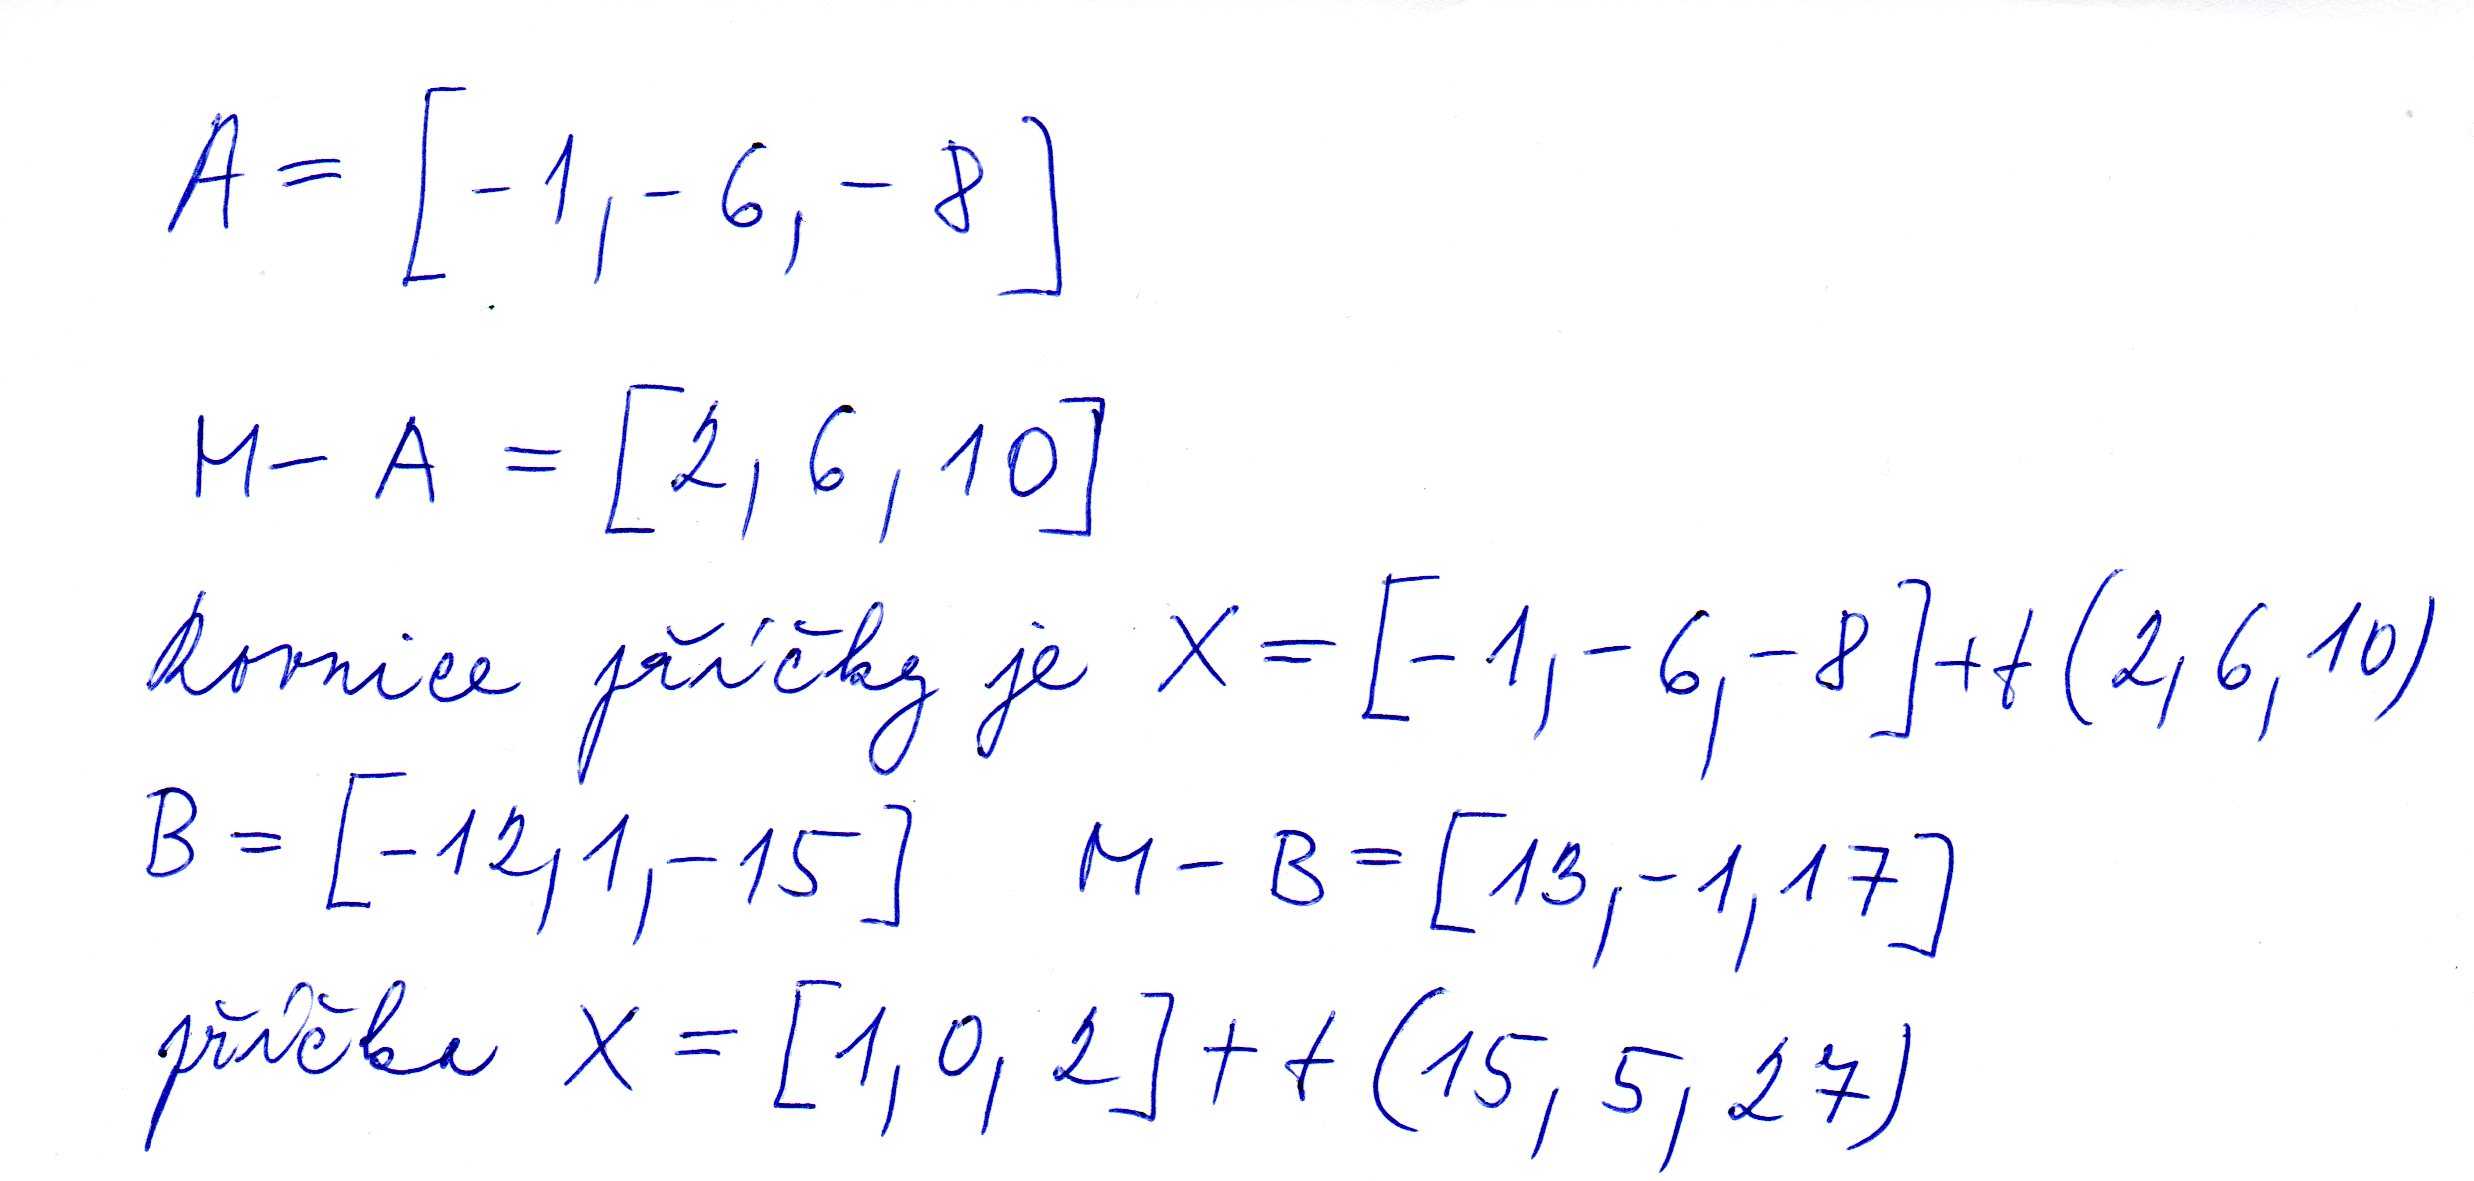 A = [-1, -6, -8]
M - A = [2, 6, 10]
Rovnice příčky je X = [-1, -6, -8] + t (2, 6, 10)
B = [-12, 1, -15] M - B = [13, -1, 17]
příčka X = [1, 0, 2] + t (15, 5, 27)